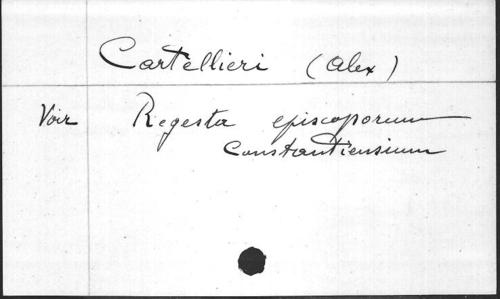 Cartellieri (Alex)
Voir Regesta episcoporum
Constantiensium